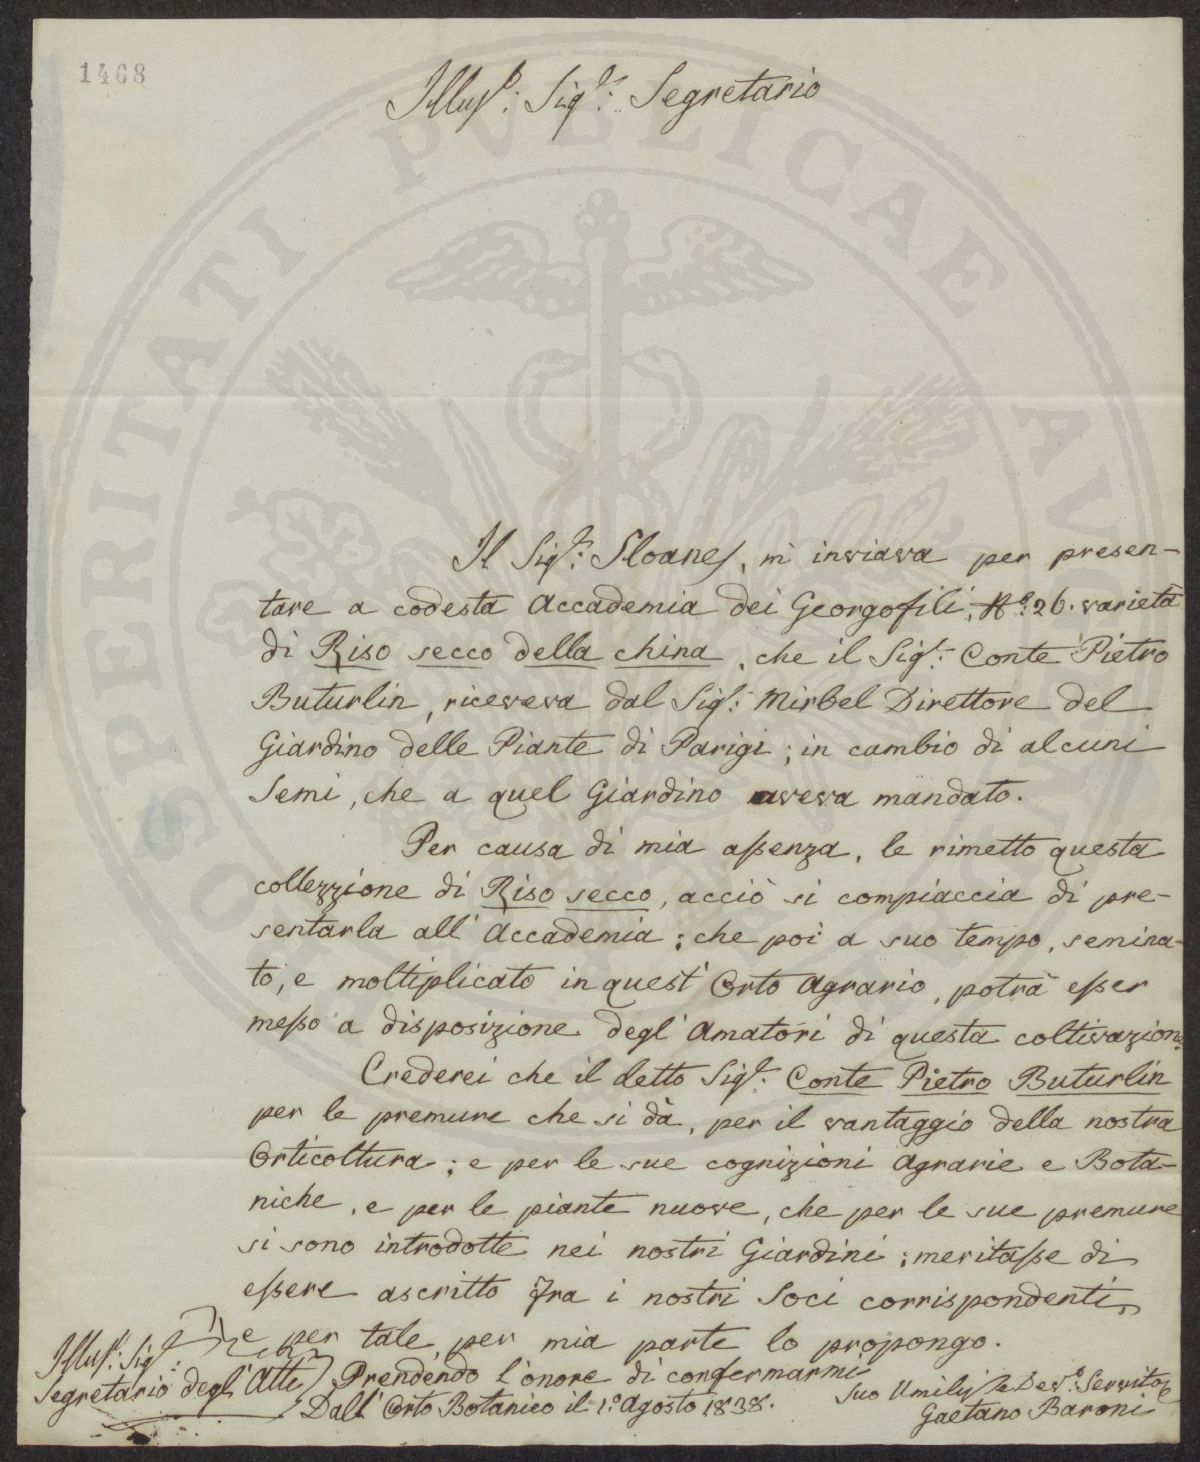 1468
Illus.: Sig.r: Segretario
Il Sig.r: Sloanes, m' inviava per presen-
tare a codesta Accademia dei Georgofili, N.o: 26. varietà
di Riso secco della china, che il Sig.r: Conte Pietro
Buturlin, riceveva dal Sig.r: Mirbel Direttore del
Giardino delle Piante di Parigi; in cambio di alcuni
Semi, che a quel Giardino aveva mandato.
Per causa di mia assenza, le rimetto questa
collezzione di Riso secco, acciò si compiaccia di pre-
sentarla all' Accademia; che poi a suo tempo, semina-
to, e moltiplicato in quest' Orto Agrario, potrà esser
messo a disposizione degl' Amatori di questa coltivazione.
Crederei che il detto Sig.r: Conte Pietro Buturlin
per le premure che si dà, per il vantaggio della nostra
Orticoltura; e per le sue cognizioni Agrarie e Bota-
niche, e per le piante nuove, che per le sue premure
si sono introdotte nei nostri Giardini; meritasse di
essere ascritto fra i nostri Soci corrispondenti,
e per tale, per mia parte lo propongo.
Prendendo l'onore di confermarmi
Illus.: Sig.r:
Segretario degl' Atti
Dall' Orto Botanico il 1.o Agosto 1838.
Suo Umilis. e Dev.o: Servitore
Gaetano Baroni
PROSPERITATI PVBLICAE AV